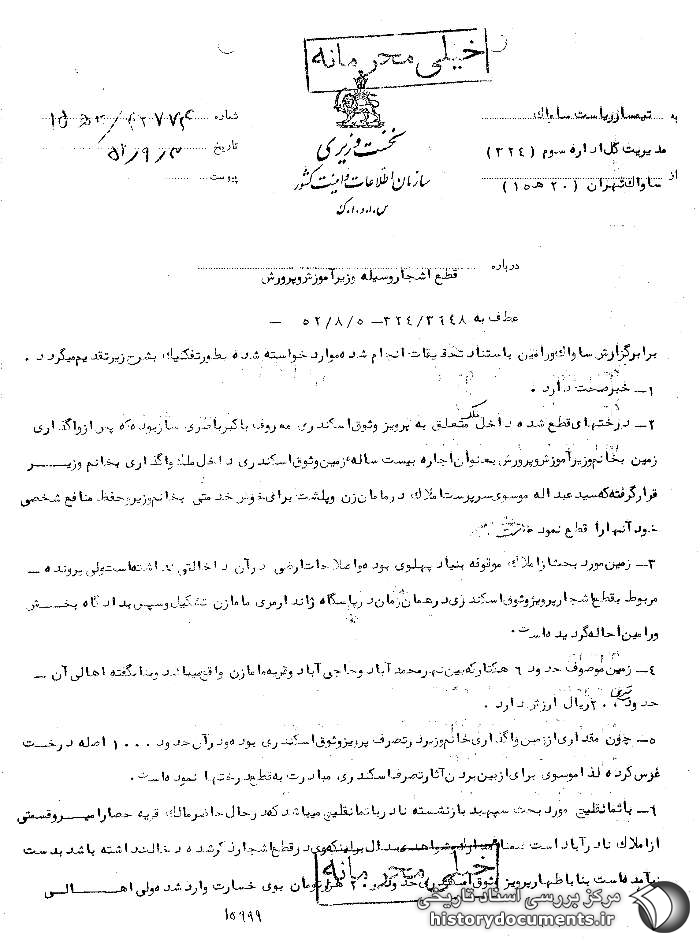 خیلی محرمانه
به تیمسار ریاست ساواک
مدیریت کل اداره سوم (۳۲۴)
از ساواک تهران (۲۰ هـ ۱۵)
نخست وزیری
سازمان اطلاعات و امنیت کشور
س.ا.و.ا.ک
شماره
تاریخ
پیوست
درباره قطع اشجار وسیله وزیر آموزش و پرورش
عطف به ۳۲۴/۳۶۴۸ – ۵۲/۸/۵ –
برابر گزارش ساواک ورامین باستناد تحقیقات انجام شده موارد خواسته شده بطور تفکیک بشرح زیر تقدیم میگردد .
۱– خبر صحت دارد .
۲– درختهای قطع شده داخل ملک متعلق به پرویز وثوق اسکندری معروف باکبر باطری ساز بوده که پس از واگذاری
زمین بخانم وزیر آموزش و پرورش بعنوان اجاره بیست ساله زمین وثوق اسکندری داخل ملک واگذاری بخانم وزیر
قرار گرفته که سید عبد اله موسوی سرپرست املاک در مامازن و پلشت برای خوش خدمتی بخانم وزیر و حفظ منافع شخصی
خود آنها را قطع نموده است
۳– زمین مورد بحث از املاک موقوفه بنیاد پهلوی بوده و اصلاحات ارضی در آن دخالتی نداشته است ولی پرونده –
مربوط بقطع اشجار پرویز وثوق اسکندری در همان زمان در پاسگاه ژاندارمری مامازن تشکیل و سپس بدادگاه بخش
ورامین احاله گردیده است .
۴– زمین موصوف حدود ۶ هکتار که بین نهر محمد آباد و حاجی آباد و قریه مامازن واقع میباشد و بنا بگفته اهالی آن –
حدود متری ۲۰۰ ریال ارزش دارد .
۵– چون مقداری از زمین واگذاری خانم وزیر در تصرف پرویز وثوق اسکندری بوده و در آن حدود ۱۰۰۰ اصله درخت
غرس کرده لذا موسوی برای از بین بردن آثار تصرف اسکندری مبادرت به قطع درختها نموده است .
۶– پاشا نقلیچ مورد بحث سپهبد بازنشسته نادر باتمانقلیچ میباشد که در حال حاضر مالک قریه حصار امیر و قسمتی
از املاک نادر آباد است ضمنا مدارک و شواهدی دال بر اینکه وی در قطع اشجار ذکر شده دخالت داشته باشد بدست
نیامده است بنا باظهار پرویز وثوق اسکندری حدود ۲۰ هزار تومان بوی خسارت وارد شده ولی اهالی
خیلی محرمانه
۱۵۹۹۹
مرکز بررسی اسناد تاریخی
historydocuments.ir